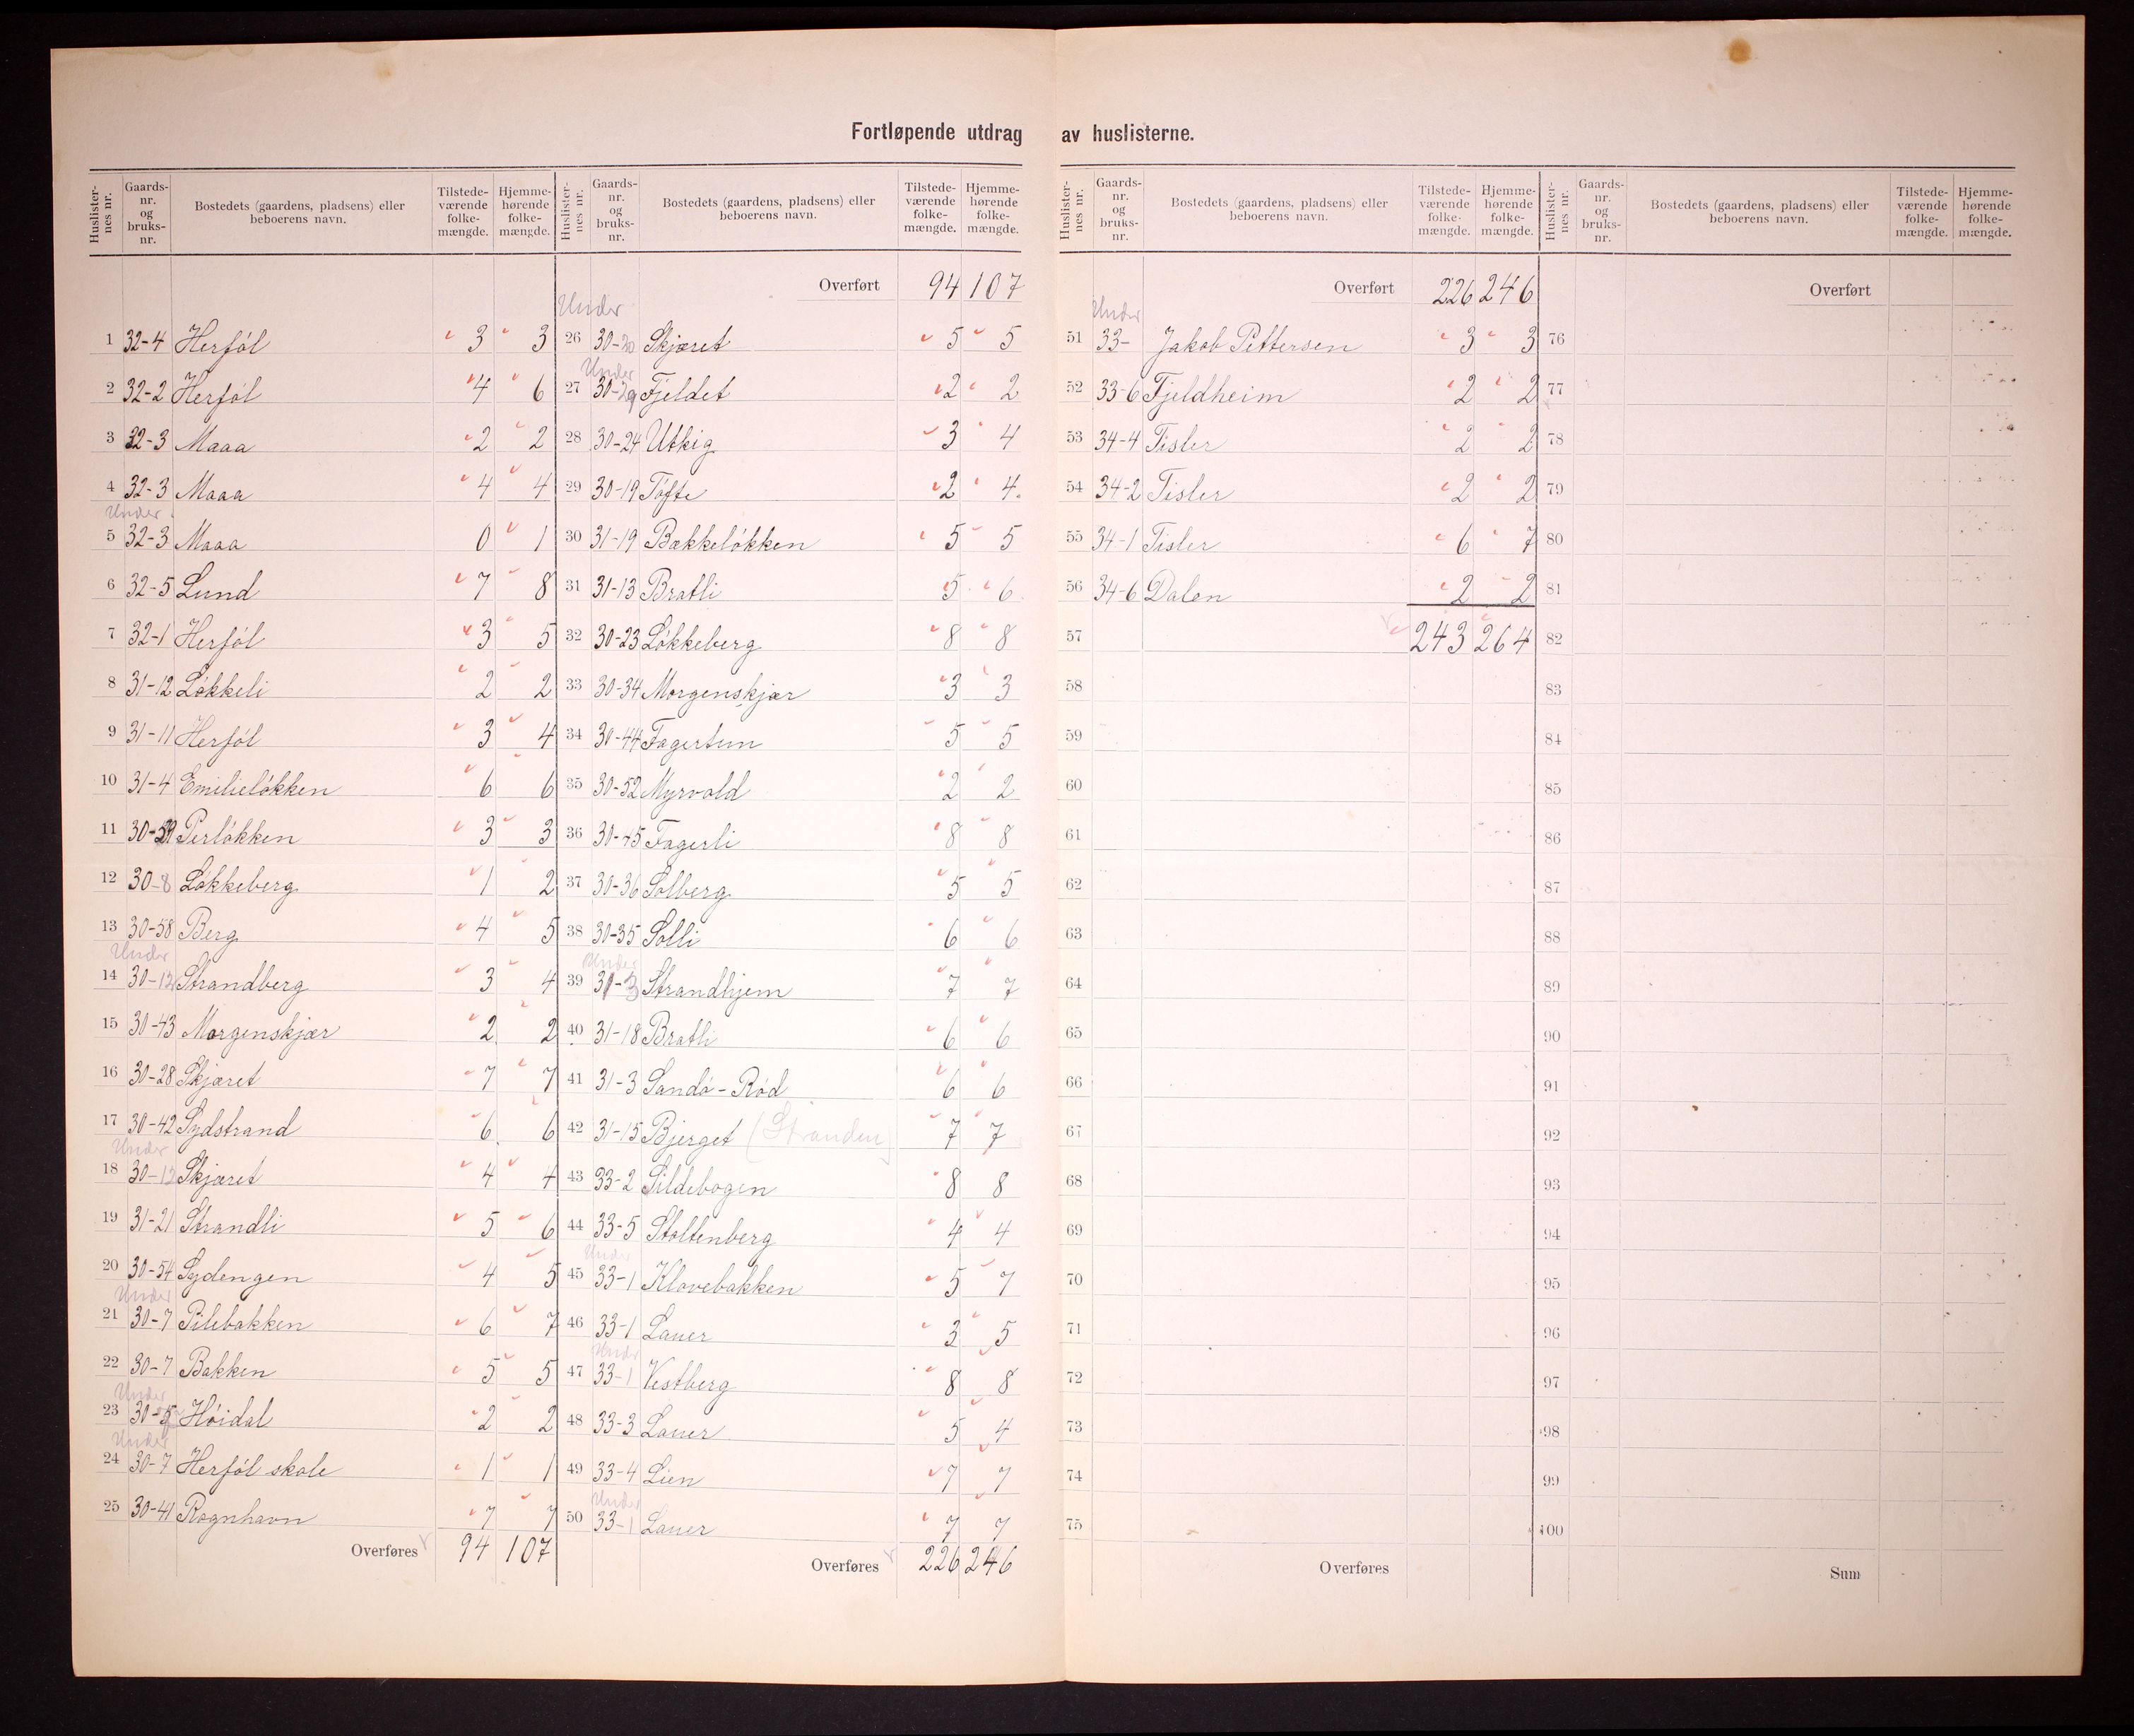 Fortløpende utdrag av huslisterne.
Huslisternes nr. Gaards-nr. og bruks-nr. Bostedets (gaardens, pladsens) eller beboerens navn. Tilstede-værende folke-mængde. Hjemme-hørende folke-mængde.
1 32-4 Herföl 3 3
2 32-2 Herföl 4 6
3 32-3 Maaa 2 2
4 32-3 Maaa 4 4
Under
5 32-3 Maaa 0 1
6 32-5 Lund 7 8
7 32-1 Herföl 3 5
8 31-12 Lökkeli 2 2
9 31-11 Herföl 3 4
10 31-4 Emilielökken 6 6
11 30-59 Perlökken 3 3
12 30-8 Lökkeberg 1 2
13 30-58 Berg 4 5
Under
14 30-12 Strandberg 3 4
15 30-43 Morgenskjær 2 2
16 30-28 Skjæret 7 7
17 30-42 Sydstrand 6 6
Under
18 30-12 Skjæret 4 4
19 31-21 Strandli 5 6
20 30-54 Sydengen 4 5
Under
21 30-7 Pilebakken 6 7
22 30-7 Bakken 5 5
Under
23 30-5 Höidal 2 2
Under
24 30-7 Herföl skole 1 1
25 30-41 Rognhavn 7 7
Overføres 94 107
Huslisternes nr. Gaards-nr. og bruks-nr. Bostedets (gaardens, pladsens) eller beboerens navn. Tilstede-værende folke-mængde. Hjemme-hørende folke-mængde.
Overført 94 107
Under
26 30-20 Skjæret 5 5
Under
27 30-29 Fjeldet 2 2
28 30-24 Utkig 3 4
29 30-19 Töfte 2 4
30 31-19 Bakkelökken 5 5
31 31-13 Bratli 5 6
32 30-23 Lökkeberg 8 8
33 30-34 Morgenskjær 3 3
34 30-44 Fagertun 5 5
35 30-52 Myrvold 2 2
36 30-45 Fagerli 8 8
37 30-36 Solberg 5 5
38 30-35 Solli 6 6
Under
39 31-3 Strandhjem 7 7
40 31-18 Bratli 6 6
41 31-3 Sandö-Röd 6 6
42 31-15 Bjerget (Stranden) 7 7
43 33-2 Sildebogen 8 8
44 33-5 Stoltenberg 4 4
Under
45 33-1 Klovebakken 5 7
46 33-1 Lauer 3 5
Under
47 33-1 Vestberg 8 8
48 33-3 Lauer 5 4
49 33-4 Lien 7 7
Under
50 33-1 Lauer 7 7
Overføres 226 246
Huslisternes nr. Gaards-nr. og bruks-nr. Bostedets (gaardens, pladsens) eller beboerens navn. Tilstede-værende folke-mængde. Hjemme-hørende folke-mængde.
Overført 226 246
Under
51 33- Jakob Pettersen 3 3
52 33-6 Fjeldheim 2 2
53 34-4 Tisler 2 2
54 34-2 Tisler 2 2
55 34-1 Tisler 6 7
56 34-6 Dalen 2 2
57 243 264
58
59
60
61
62
63
64
65
66
67
68
69
70
71
72
73
74
75
Overføres
Huslisternes nr. Gaards-nr. og bruks-nr. Bostedets (gaardens, pladsens) eller beboerens navn. Tilstede-værende folke-mængde. Hjemme-hørende folke-mængde.
Overført
76
77
78
79
80
81
82
83
84
85
86
87
88
89
90
91
92
93
94
95
96
97
98
99
100
Sum